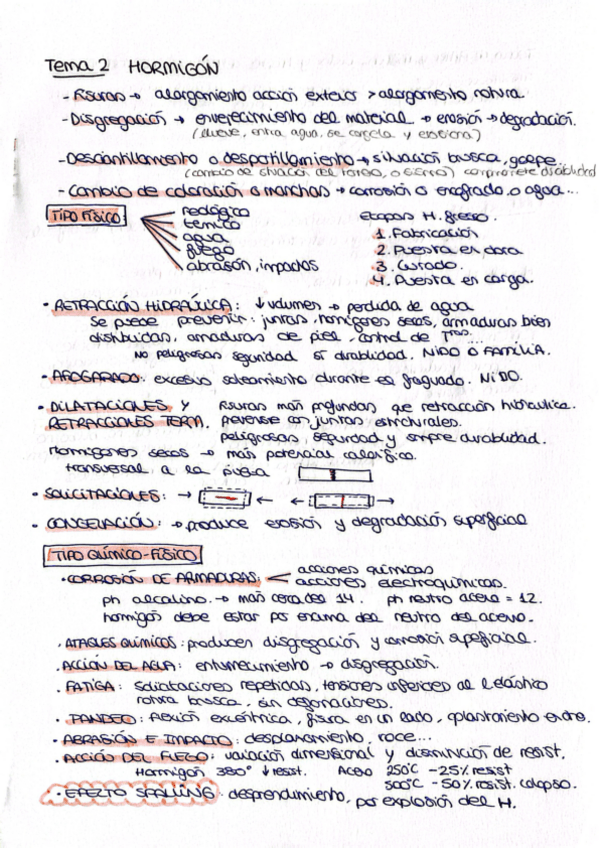 Tema 2 HORMIGÓN
- Fisuras → alargamiento acción exterior > alargamiento rotura.
- Disgregación → envejecimiento del material → erosión → degradación.
(llueve, entra agua, se congela y erosiona)
- Descantillamiento o despostillamiento → situación brusca, golpe.
(cambio de situación del compromete durabilidad
- Cambio de coloración o manchas → corrosión o encofrado, o agua...
TIPO FÍSICO:
reológico
térmico
agua
fuego
abrasión, impactos
Etapas H. fresco.
1. Fabricación
2. Puesta en obra
3. Curado.
4. Puesta en carga.
· RETRACCIÓN HIDRÁULICA: ↓ volumen → perdida de agua
Se puede prevenir: juntas, hormigones secos, armaduras bien
distribuidas, armaduras de piel, control de Tªˢ...
No peligrosas seguridad SÍ durabilidad. NIDO O FAMILIA.
· AFOGARADO: excesivo soleamiento durante el fraguado. NIDO.
· DILATACIONES Y RETRACCIONES TERM.
fisuras más profundas que retracción hidraulica.
preverse en juntas estructurales.
peligrosas, seguridad y simpre durabilidad.
Hormigones secos → más potencial calorífico.
transversal a la pieza
· SOLICITACIONES: → ← ← →
· CONGELACIÓN: → produce erosión y degradación superficial
TIPO QUÍMICO-FÍSICO
· CORROSIÓN DE ARMADURAS:
acciones químicas
acciones electroquímicas.
ph alcalino → más cerca del 14. ph neutro acero = 12.
hormigón debe estar por encima del neutro del acero.
· ATAQUES QUÍMICOS: producen disgregación y corrosión superficial.
· ACCIÓN DEL AGUA: entumecimiento → disgregación.
· FATIGA: Solicitaciones repetidas, tensiones inferiores al l. elástico
rotura brusca, sin deformaciones.
· PANDEO: flexión excéntrica, fisura en un lado, aplastamiento en otro.
· ABRASIÓN E IMPACTO: desplazamiento, roce...
· ACCIÓN DEL FUEGO: variación dimensional y disminución de resist.
Hormigón 380° ↓ resist. Acero 250°C - 25% resist
500°C - 50% resist. colapso.
· EFECTO SPALLING: desprendimiento, por explosión del H.